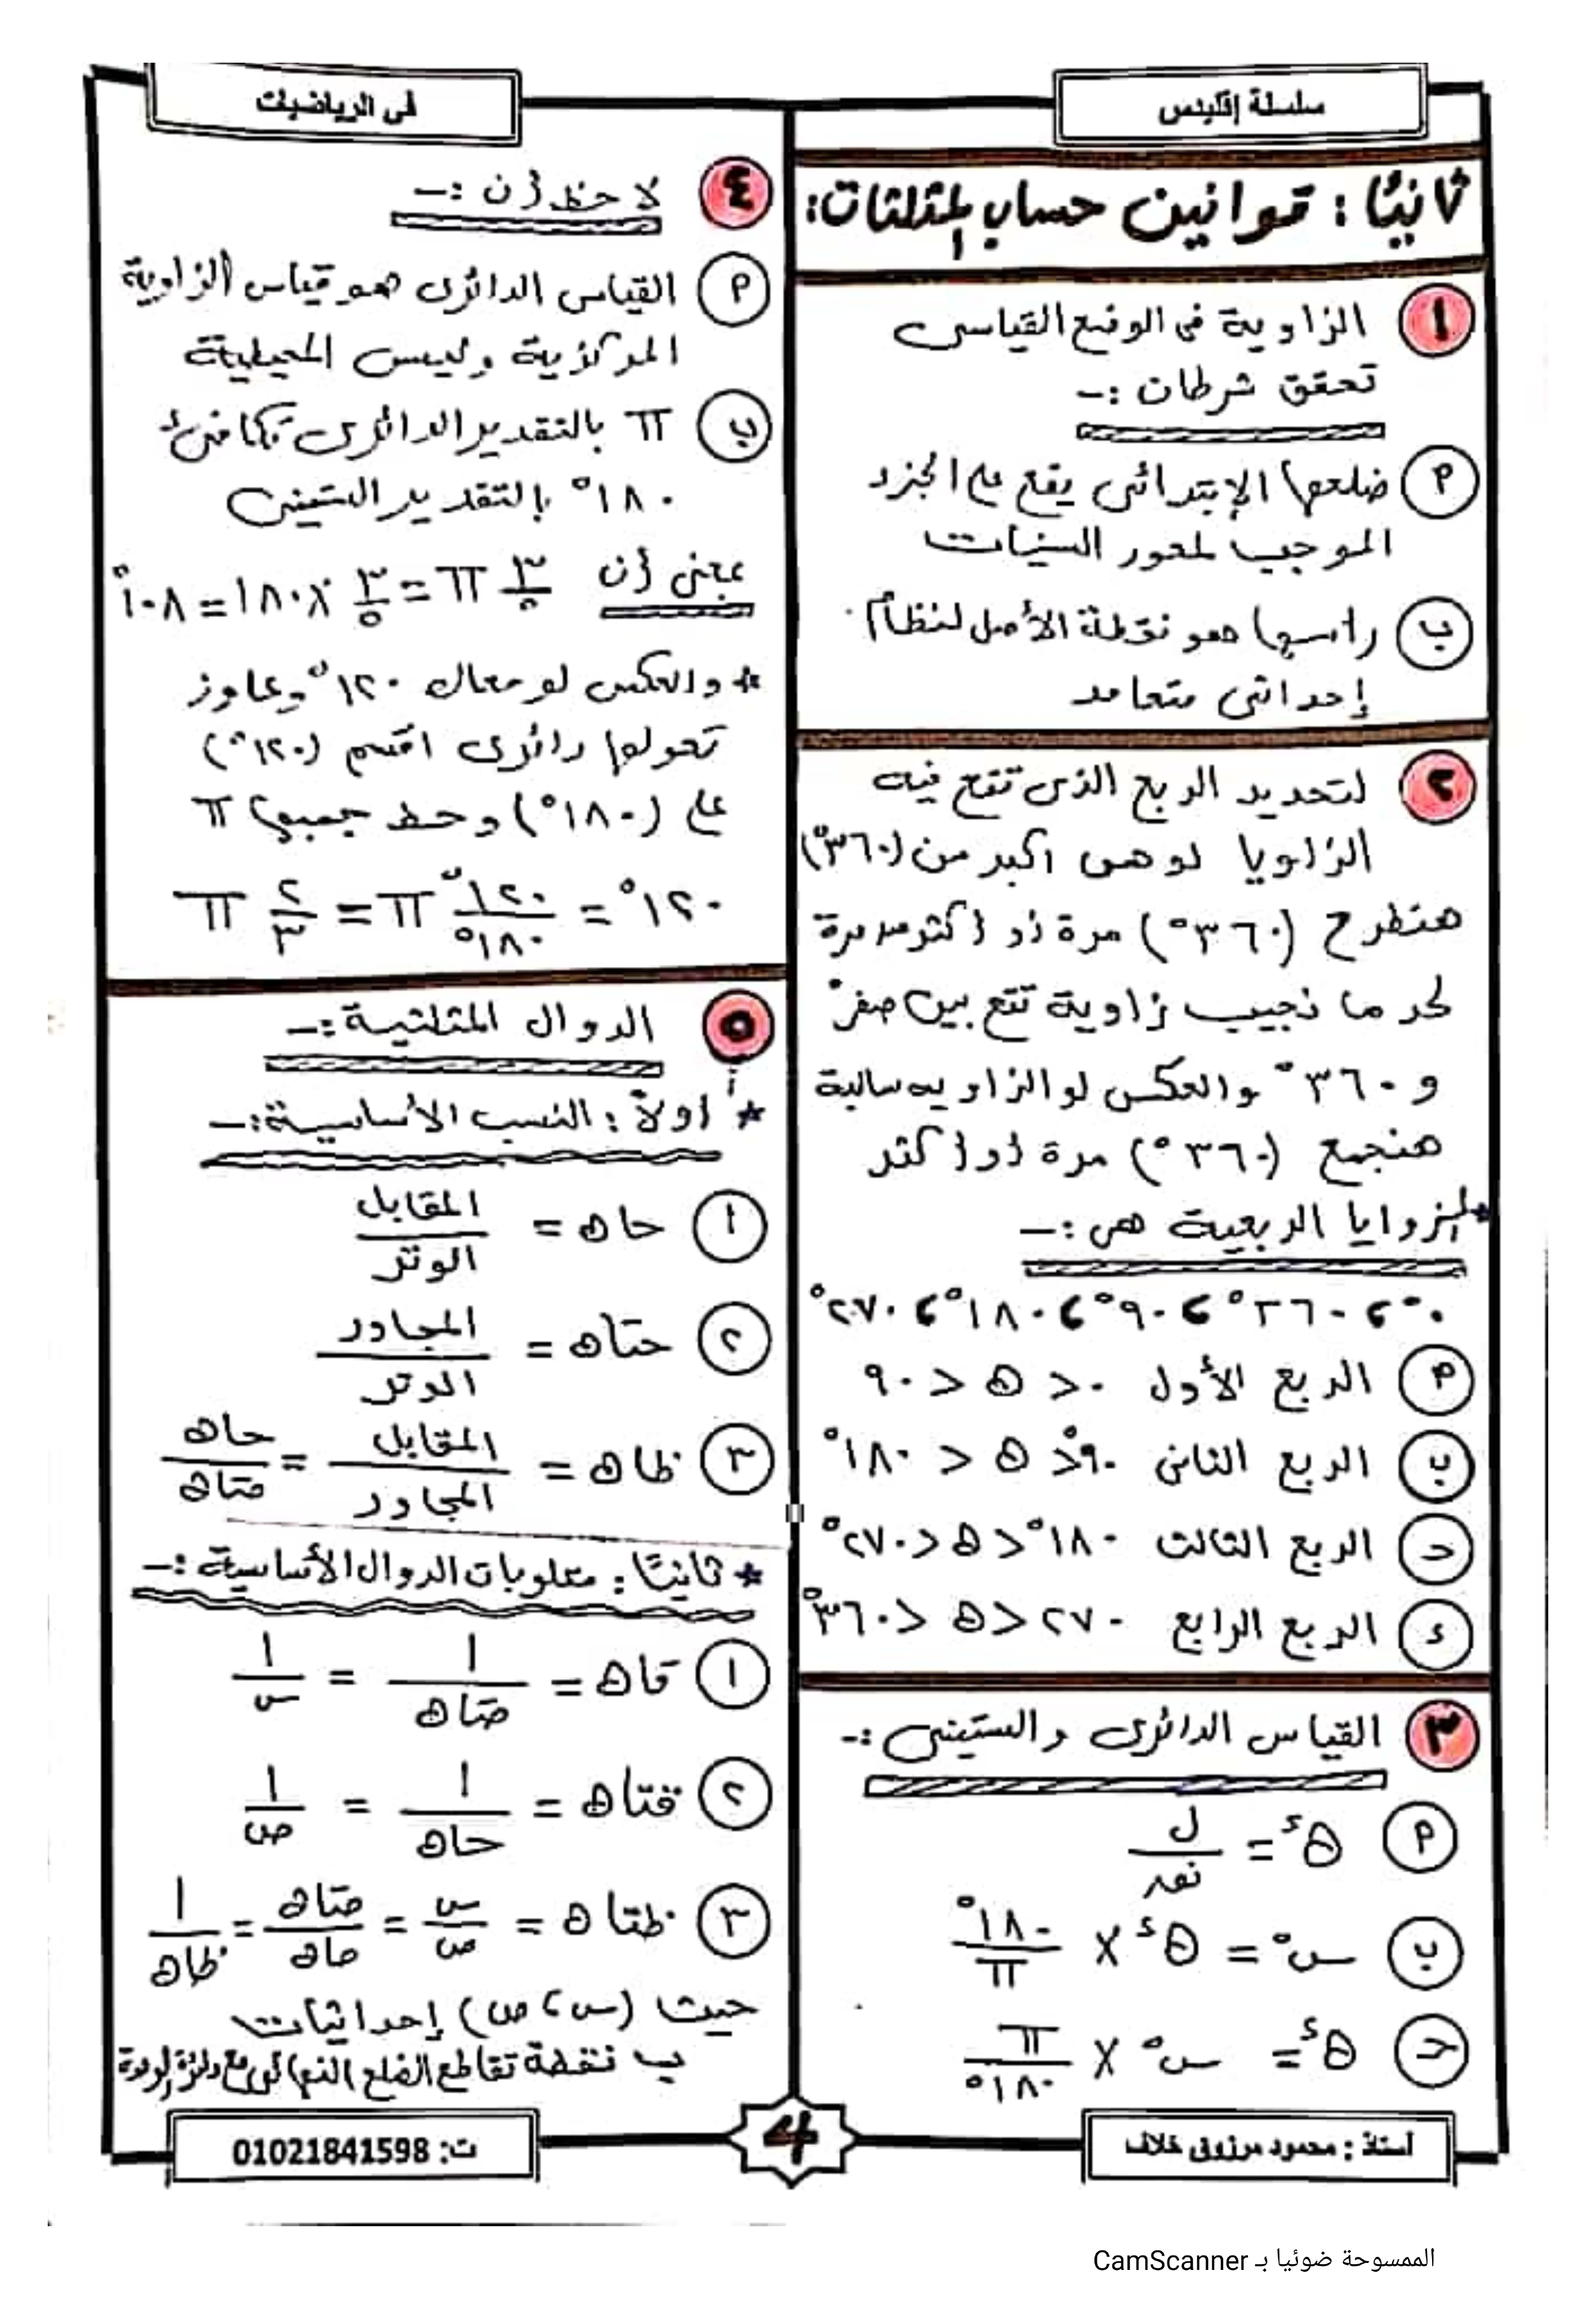 سلسلة إقليدس
فى الرياضيات
ثانيًا : قوانين حساب المثلثات:
١ الزاوية فى الوضع القياسى
تحقق شرطان :-
٩ ضلعها الإبتدائى يقع على الجزء
الموجب لمحور السينات
ب رأسها هو نقطة الأصل لنظام
إحداثى متعامد
٢ لتحديد الربع الذى تقع فيه
الزاويا لو هى اكبر من (٣٦٠°)
هنطرح (٣٦٠°) مرة أو أكثر من مرة
لحد ما نجيب زاوية تقع بين صفر°
و ٣٦٠° والعكس لو الزاويه سالبة
هنجمع (٣٦٠°) مرة أو أكثر
* الزوايا الربعية هى :-
٠° ، ٣٦٠° ، ٩٠° ، ١٨٠° ، ٢٧٠°
٩ الربع الأول ٠ < θ < ٩٠
ب الربع الثانى ٩٠° < θ < ١٨٠°
ح الربع الثالث ١٨٠° < θ < ٢٧٠°
ء الربع الرابع ٢٧٠ < θ < ٣٦٠°
٣ القياس الدائرى والستينى :-
٩ θ^ء = ل / نق
ب س° = θ^ء × ١٨٠° / π
ح θ^ء = س° × π / ١٨٠°
٤ لاحظ أن :-
٩ القياس الدائرى هو قياس الزاوية
المركزية وليس المحيطية
ب π بالتقدير الدائرى تكافئ
١٨٠° بالتقدير الستينى
بمعنى أن ٣/٥ π = ٣/٥ × ١٨٠ = ١٠٨°
* والعكس لو معاك ١٢٠° وعاوز
تحولها دائرى اقسم (١٢٠°)
على (١٨٠°) وحط جمبها π
١٢٠° = ١٢٠° / ١٨٠° π = ٢/٣ π
٥ الدوال المثلثية :-
* أولاً : النسب الأساسية :-
١ حاθ = المقابل / الوتر
٢ حتاθ = المجاور / الوتر
٣ ظاθ = المقابل / المجاور = حاθ / حتاθ
* ثانيًا : مقلوبات الدوال الأساسية :-
١ قاθ = ١ / حتاθ = ١ / س
٢ قتاθ = ١ / حاθ = ١ / ص
٣ ظتاθ = س / ص = حتاθ / حاθ = ١ / ظاθ
حيث (س ، ص) إحداثيات
ب نقطة تقاطع الضلع النهائى مع دائرة الوحدة
أستاذ : محمود مرزوق خلاف
4
ت: 01021841598
الممسوحة ضوئيا بـ CamScanner